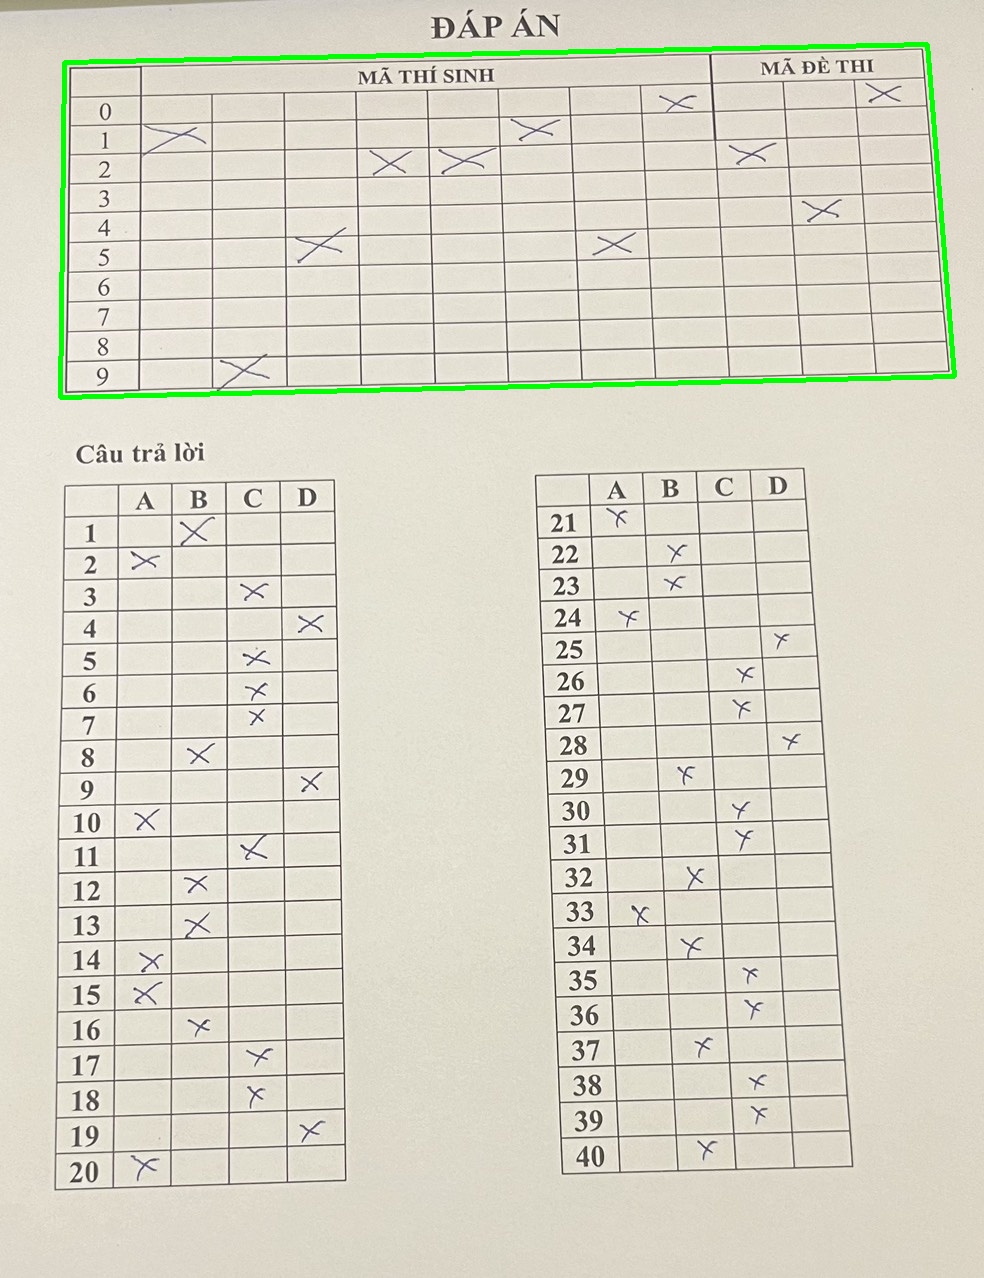 ĐÁP ÁN
MÃ THÍ SINH MÃ ĐỀ THI
0 X X
1 X X
2 X X X
3
4 X
5 X X
6
7
8
9 X
Câu trả lời
A B C D
1 X
2 X
3 X
4 X
5 X
6 X
7 X
8 X
9 X
10 X
11 X
12 X
13 X
14 X
15 X
16 X
17 X
18 X
19 X
20 X
A B C D
21 X
22 X
23 X
24 X
25 X
26 X
27 X
28 X
29 X
30 X
31 X
32 X
33 X
34 X
35 X
36 X
37 X
38 X
39 X
40 X